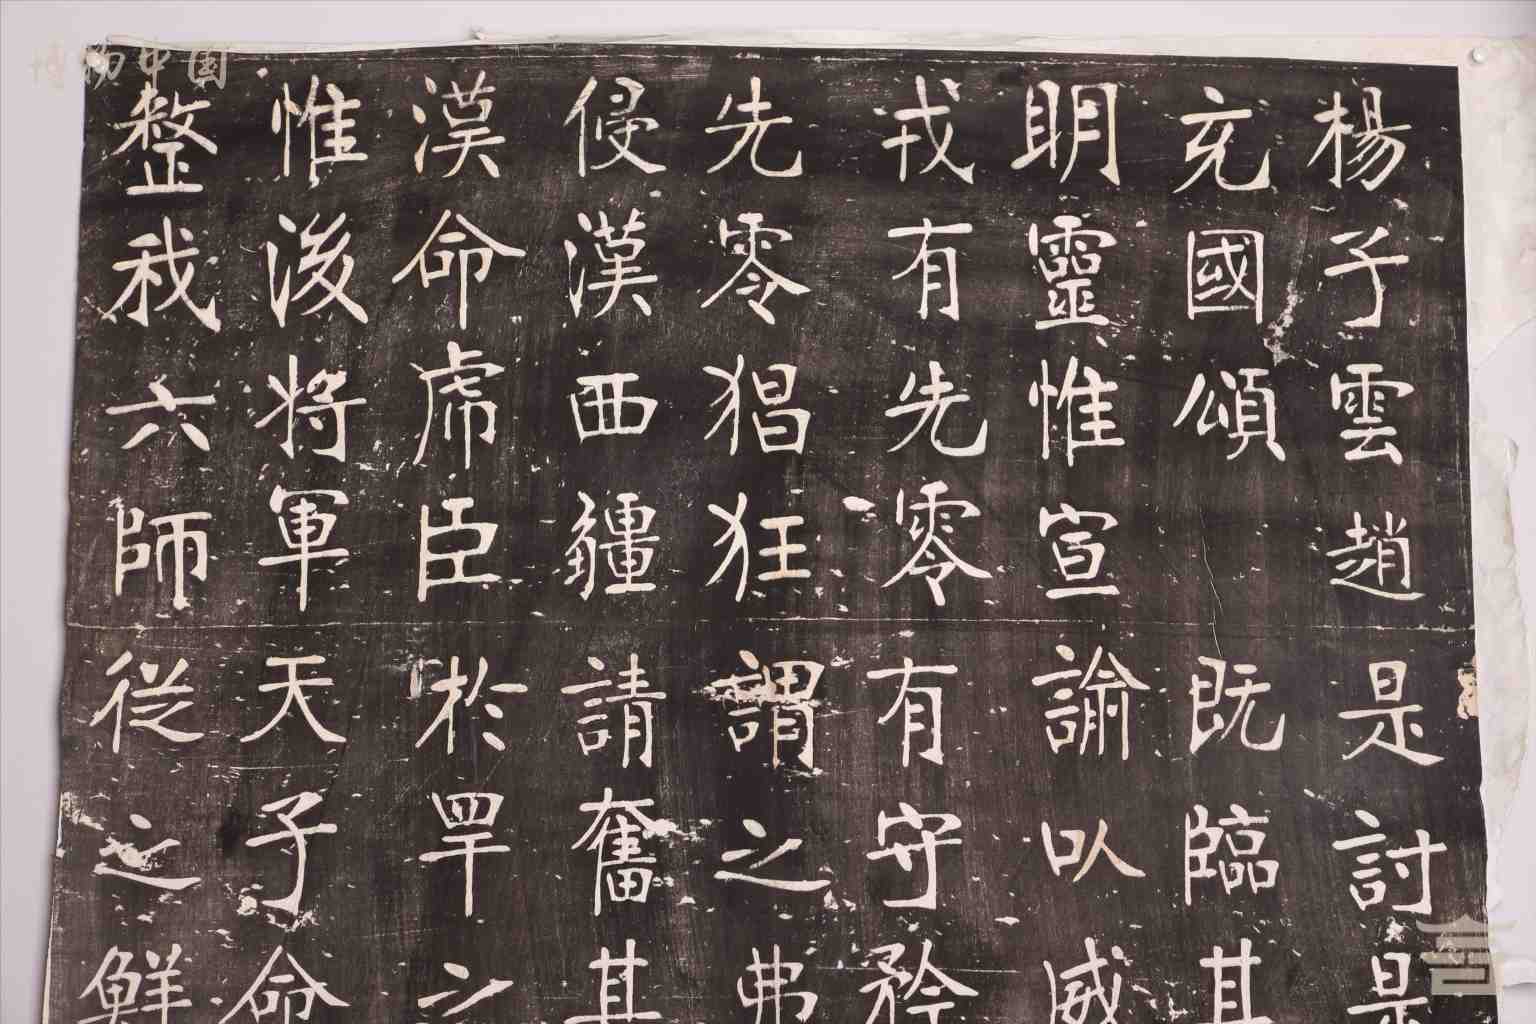 楊子雲趙是討是
充國頌 既臨其
明靈惟宣諭以威
戎有先零有守矜
先零猖狂謂之弗
侵漢西疆請奮其
漢命虎臣於罕之
惟後將軍天子命
整我六師從之鮮
博物中国